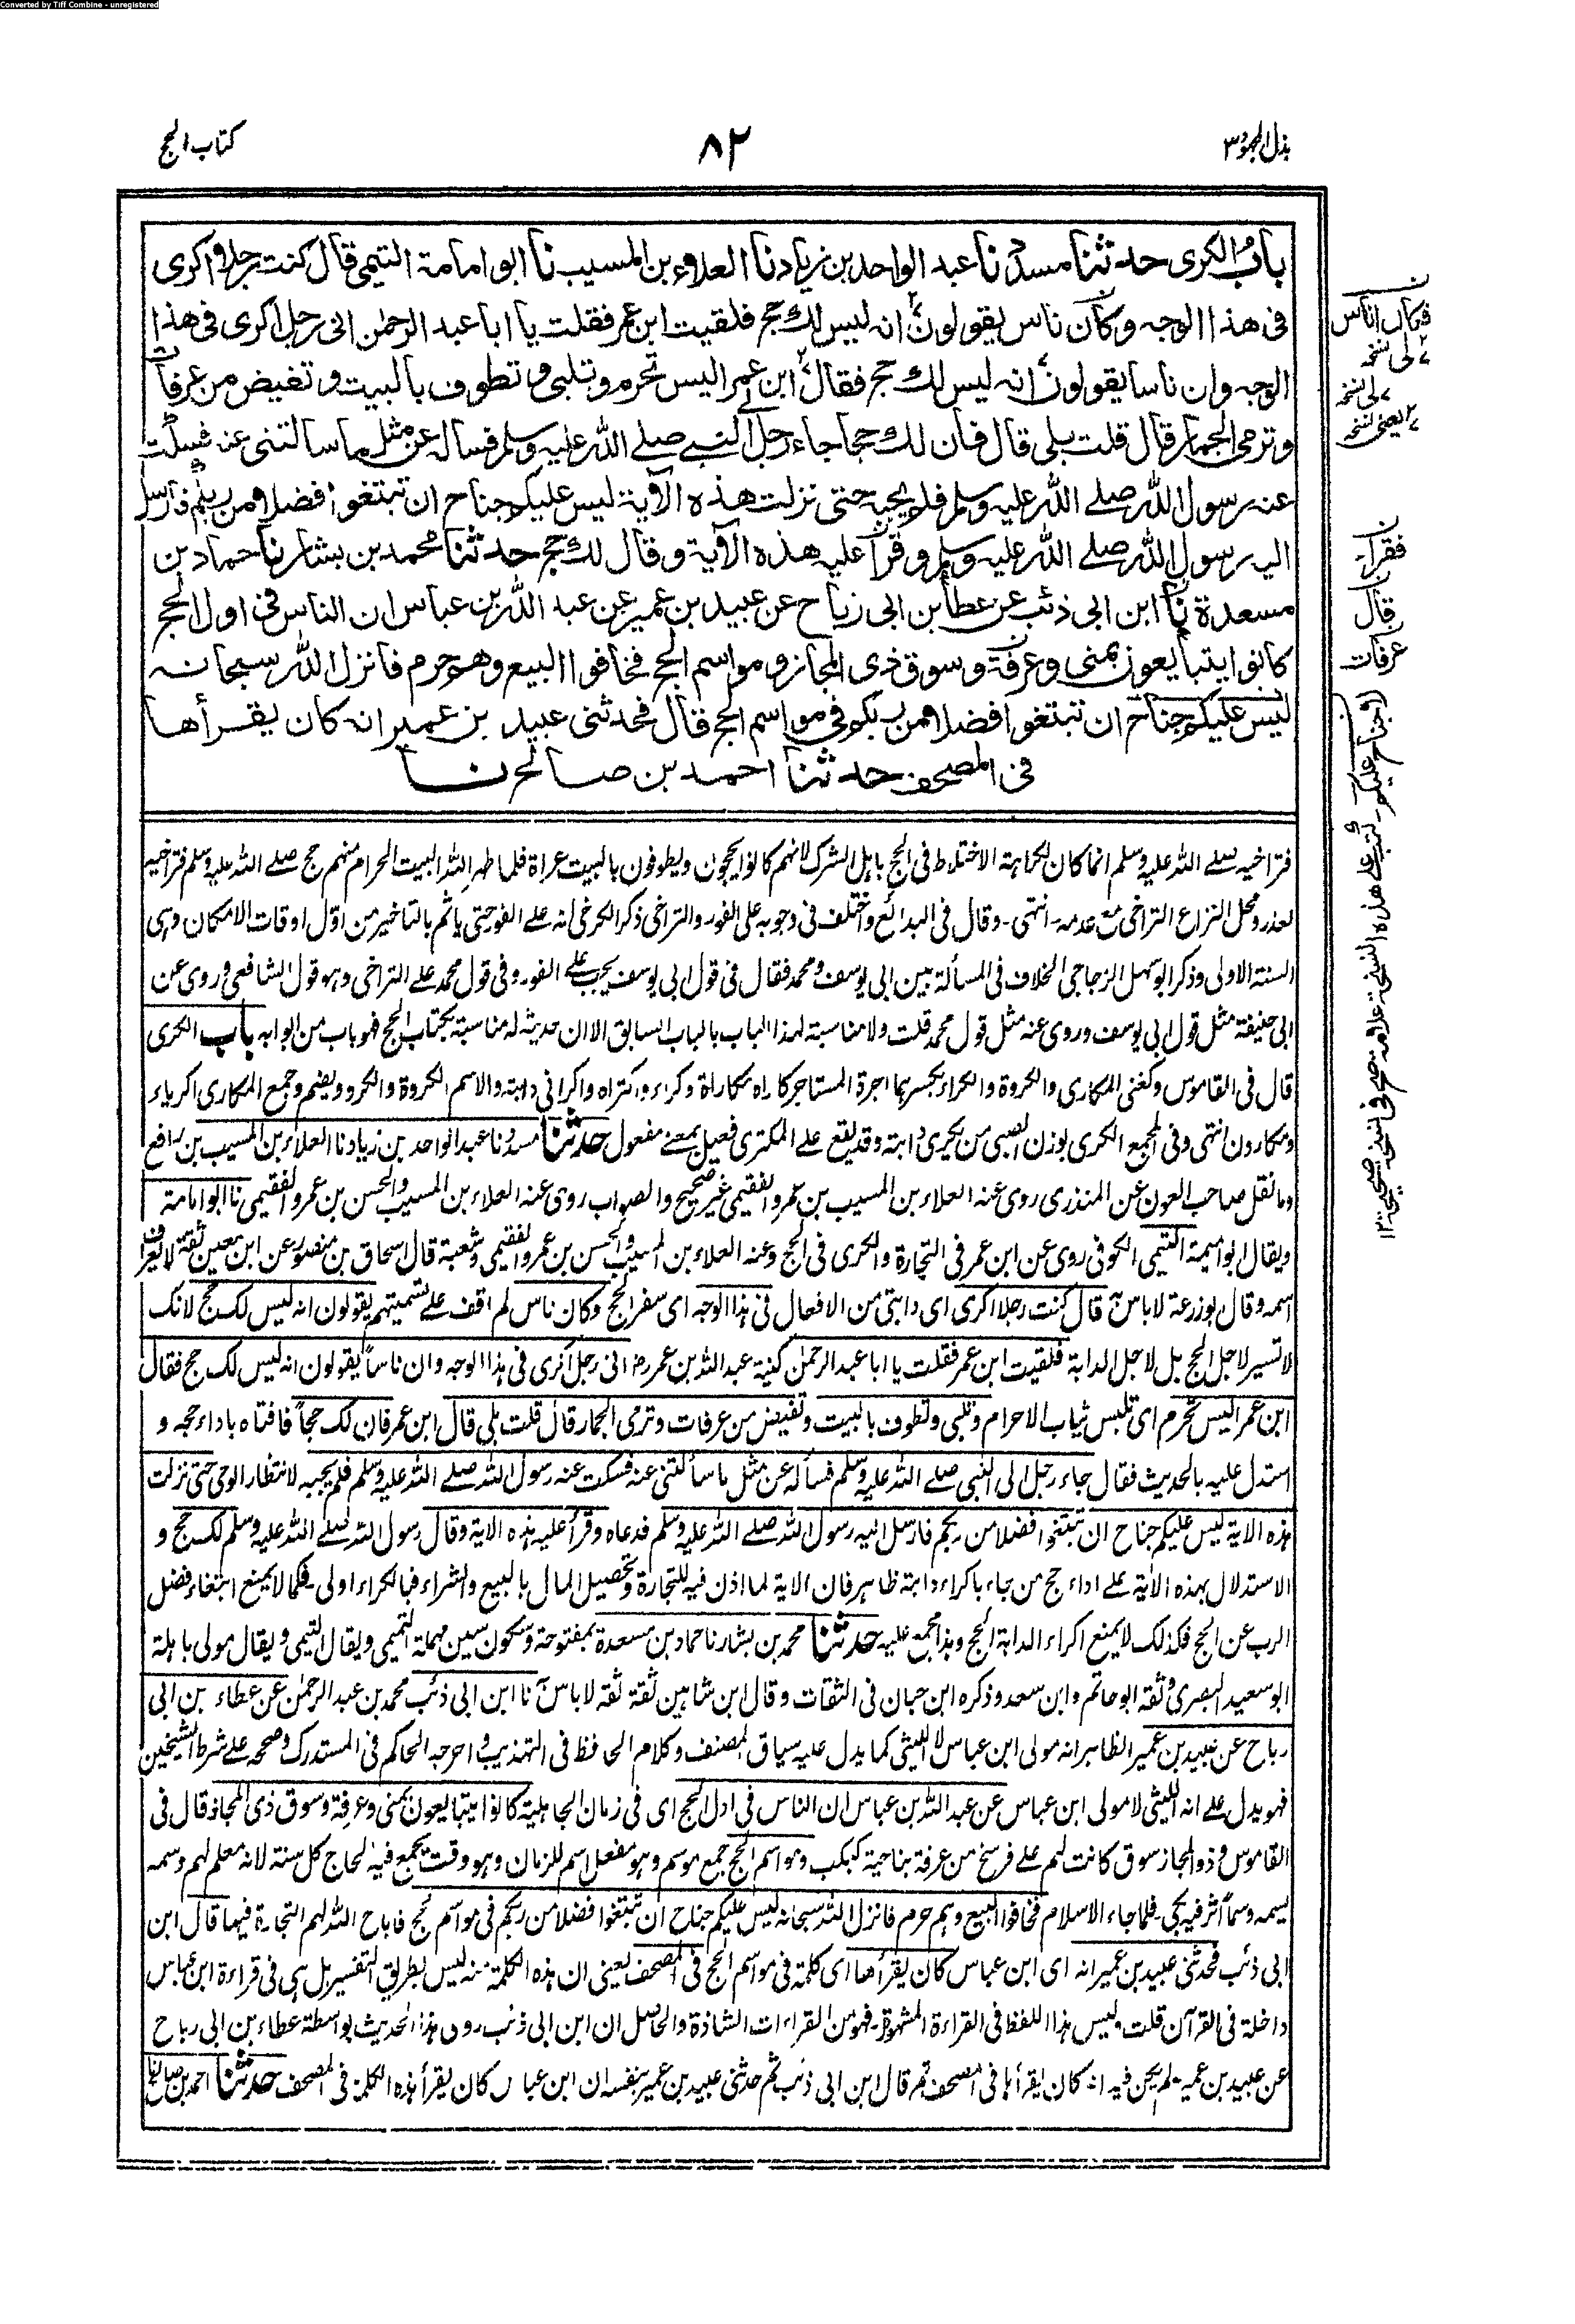 Converted by Tiff Combine - unregistered
بذل المجهود ٣
٨٢
كتاب الحج
باب الكرى حدثنا مسدد نا عبد الواحد بن زياد نا العلاء بن المسيب نا ابو امامة التيمى قال كنت رجلا اكرى
فى هذا الوجه وكان ناس يقولون انه ليس لك حج فلقيت ابن عمر فقلت يا ابا عبد الرحمن انى رجل اكرى فى هذا
الوجه وان ناسا يقولون انه ليس لك حج فقال ابن عمر اليس تحرم وتلبى وتطوف بالبيت وتفيض من عرفات
وترمى الجمار قال قلت بلى قال فان لك حجا جاء رجل الى النبى صلے الله عليه وسلم فسأله عن مثل ما سالتنى عنه فسكت
عنه رسول الله صلے الله عليه وسلم فلم يجبه حتى نزلت هذه الآية ليس عليكم جناح ان تبتغوا فضلا من ربكم فارسل
اليه رسول الله صلے الله عليه وسلم وقرأ عليه هذه الآية وقال لك حج حدثنا محمد بن بشار نا حماد بن
مسعدة نا ابن ابى ذئب عن عطاء بن ابى رباح عن عبيد بن عمير عن عبد الله بن عباس ان الناس فى اول الحج
كانوا يتبايعون بمنى وعرفة وسوق ذى المجاز ومواسم الحج فخافوا البيع وهم حرم فانزل الله سبحانه
ليس عليكم جناح ان تبتغوا فضلا من ربكم فى مواسم الحج قال فحدثنى عبيد بن عمير انه كان يقرأها
فى المصحف حدثنا احمد بن صالح نا
فكان اناس
لى نسخه
لى نسخه
يعنى نسخه
فقرأ
قال
عرفات
فتراخيه صلے الله عليه وسلم انما كان لكراهة الاختلاط فى الحج باهل الشرك لانهم كانوا يحجون ويطوفون بالبيت عراة فلما طهر الله البيت الحرام منهم حج صلے الله عليه وسلم فتراخيه
لعذر ومحل النزاع التراخى مع عدمه ـ انتهى ـ وقال فى البدائع واختلف فى وجوبه على الفور والتراخى ذكر الكرخى انه علے الفور حتى ياثم بالتاخير من اول اوقات الامكان وہى
السنة الاولى وذكر ابو سهل الزجاجى الخلاف فى المسألة بين ابى يوسف ومحمد فقال فى قول ابى يوسف يجب علے الفور وفى قول محمد علے التراخى وہو قول الشافعى وروى عن
ابى حنيفة مثل قول ابى يوسف وروى عنه مثل قول محمد قلت ولا مناسبة لهذا الباب بالباب السابق الا ان حديثه له مناسبة بكتاب الحج فهو باب من ابوابه باب الكرى
قال فى القاموس وكغنى المكارى والكروة والكراء بكسرهما اجرة المستاجر كاراه مكاراة وكراء واكتراه واكرانى دابته والاسم الكروة والكرو ويضم وجمع المكارى اكرياء
ومكارون انتهى وفى المجمع الكرى بوزن الصبى من يكرى دابته وقد يقع علے المكترى فعيل بمعنے مفعول حدثنا مسدد نا عبد الواحد بن زياد نا العلاء بن المسيب بن رافع
وما نقل صاحب العون عن المنذرى روى عنه العلاء بن المسيب بن عمرو الفقيمى غير صحيح والصواب روى عنه العلاء بن المسيب والحسن بن عمرو الفقيمى نا ابو امامة
ويقال ابو اميمة التيمى الكوفى روى عن ابن عمر فى التجارة والكرى فى الحج وعنه العلاء بن المسيب والحسن بن عمرو الفقيمى وشعبة قال اسحاق بن منصور عن ابن معين ثقة لا يعرف
اسمه وقال ابو زرعة لا باس به قال كنت رجلا اكرى اى دابتى من الافعال فى هذا الوجه اى سفر الحج وكان ناس لم اقف علے تسميتهم يقولون انه ليس لك حج لانك
لا تسير لاجل الحج بل لاجل الدابة فلقيت ابن عمر فقلت يا ابا عبد الرحمن كنية عبد الله بن عمر رض انى رجل اكرى فى هذا الوجه وان ناساً يقولون انه ليس لك حج فقال
ابن عمر اليس تحرم اى تلبس ثياب الاحرام وتلبى وتطوف بالبيت وتفيض من عرفات وترمى الجمار قال قلت بلى قال ابن عمر فان لك حجاً فافتاه باداء حجه و
استدل عليه بالحديث فقال جاء رجل الى النبى صلے الله عليه وسلم فسأله عن مثل ما سألتنى عنه فسكت عنه رسول الله صلے الله عليه وسلم فلم يجبه لانتظار الوحى حتى نزلت
هذه الاية ليس عليكم جناح ان تبتغوا فضلا من ربكم فارسل اليه رسول الله صلے الله عليه وسلم فدعاه وقرأ عليه هذه الاية وقال رسول الله صلے الله عليه وسلم لك حج و
الاستدلال بهذه الاية علے اداء حج من جاء باكراء دابة ظاهر فان الاية لما اذن فيه للتجارة وتحصيل المال بالبيع والشراء فبالكراء اولى ـ فكما لا يمنع ابتغاء فضل
الرب عن الحج فكذلك لا يمنع اكراء الدابة الحج وہذا مجمع عليه حدثنا محمد بن بشار نا حماد بن مسعدة بمفتوحة وسكون سين مهملة التميمى ويقال التيمى ويقال مولى باهلة
ابو سعيد البصرى وثقه ابو حاتم وابن سعد وذكره ابن حبان فى الثقات وقال ابن شاهين ثقة ثقه لا باس به نا ابن ابى ذئب محمد بن عبد الرحمن عن عطاء بن ابى
رباح عن عبيد بن عمير الظاهر انه مولى ابن عباس لا الليثى كما يدل عليه سياق المصنف وكلام الحافظ فى التهذيب واخرجه الحاكم فى المستدرك وصححه علے شرط الشيخين
فهو يدل علے انه الليثى لا مولى ابن عباس عن عبد الله بن عباس ان الناس فى اول الحج اى فى زمان الجاهلية كانوا يتبايعون بمنى وعرفة وسوق ذى المجاز قال فى
القاموس وذو المجاز سوق كانت لهم علے فرسخ من عرفة بناحية كبكب ومواسم الحج جمع موسم وهو مفعل اسم للزمان وهو وقت يجمع فيه الحاج كل سنة لانه معلم لهم وسمه
يسمه وسماً اثر فيه بكى ـ فلما جاء الاسلام فخافوا البيع وهم حرم فانزل الله سبحانه ليس عليكم جناح ان تبتغوا فضلا من ربكم فى مواسم الحج فاباح الله لهم التجارة فيها قال ابن
ابى ذئب فحدثنى عبيد بن عمير انه اى ابن عباس كان يقرأها اى كلمة فى مواسم الحج فى المصحف يعنى ان هذه الكلمة منه ليس بطريق التفسير بل هى فى قراءة ابن عباس
داخلة فى القرآن قلت وليس هذا اللفظ فى القراءة المشهورة ـ فهو من القراءات الشاذة والحاصل ان ابن ابى ذئب روى هذا الحديث بواسطة عطاء بن ابى رباح
عن عبيد بن عمير ولم يكن فيه انه كان يقرأها فى المصحف ثم قال ابن ابى ذئب ثم حدثنى عبيد بن عمير بنفسه ان ابن عباس كان يقرأ هذه الكلمة فى المصحف حدثنا احمد بن صالح نا